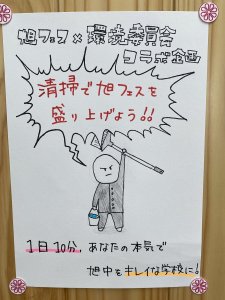 旭フェス×環境委員会
コラボ企画
清掃で旭フェスを
盛り上げよう!!
1日10分、あなたの本気で
旭中をキレイな学校に!